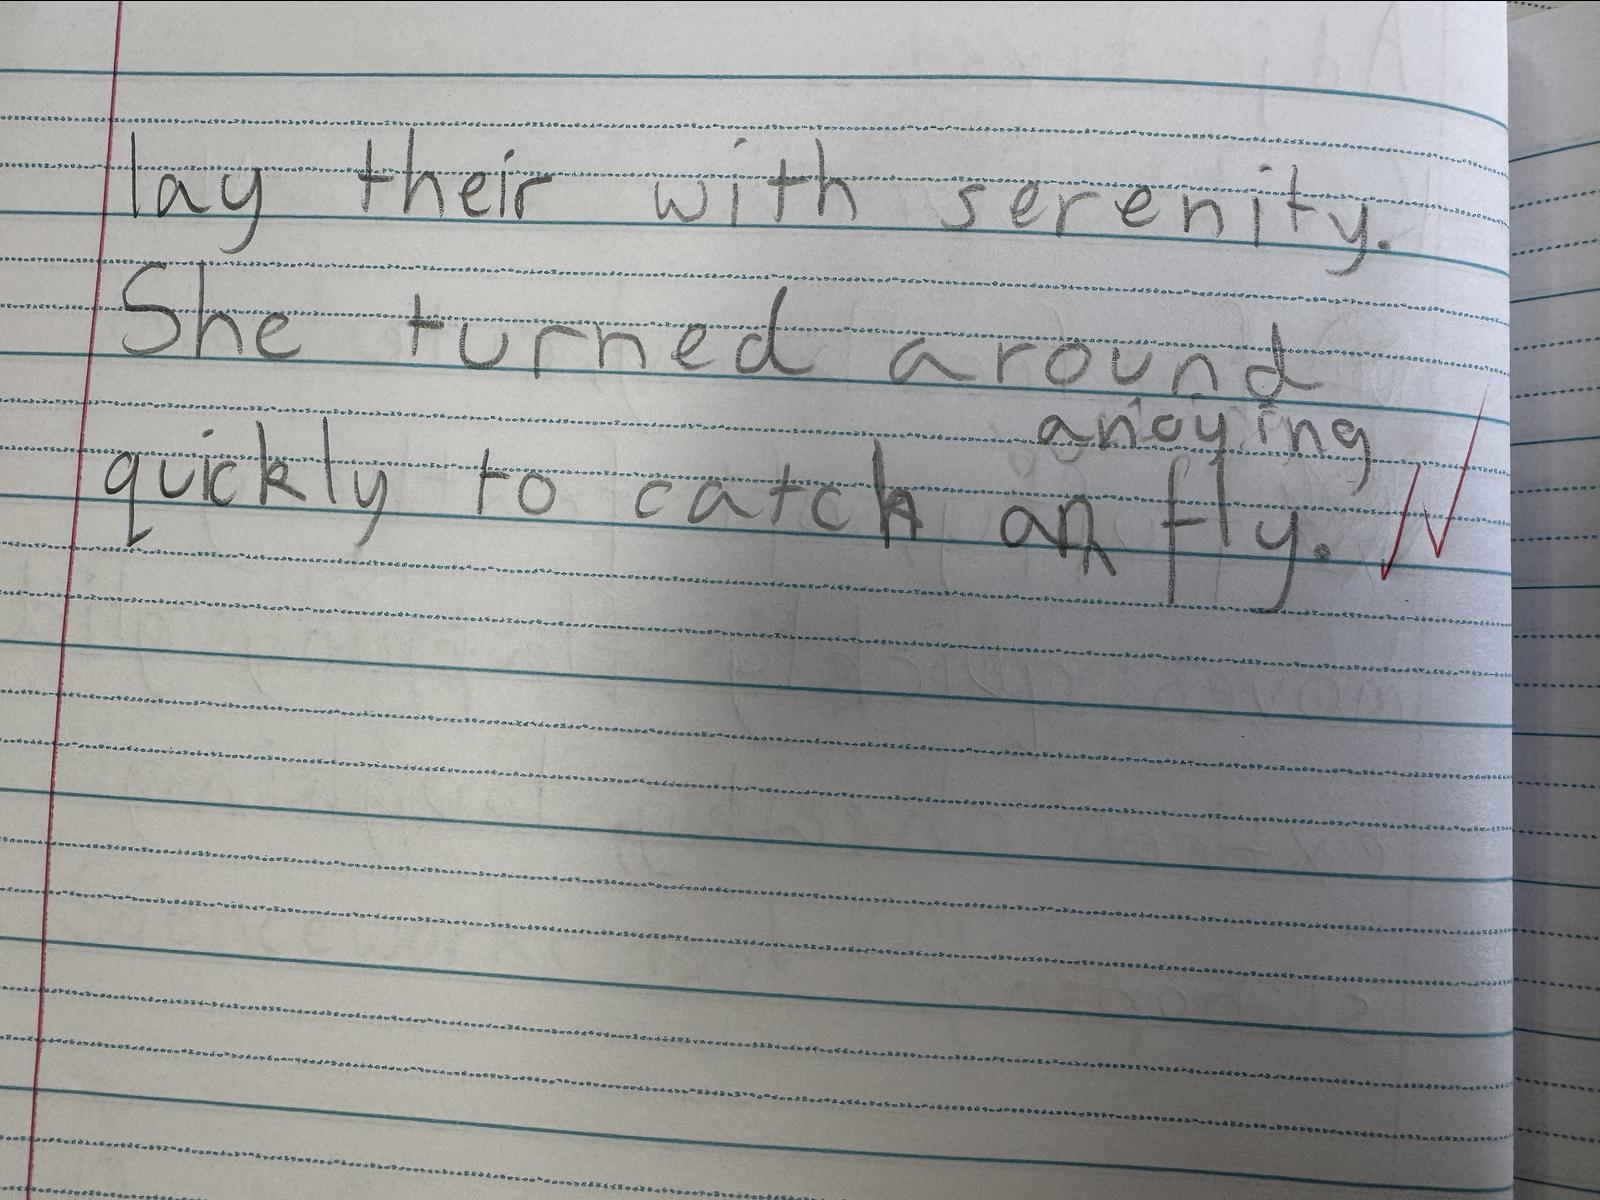 lay their with serenity.
She turned around
anoying
quickly to catch an fly.